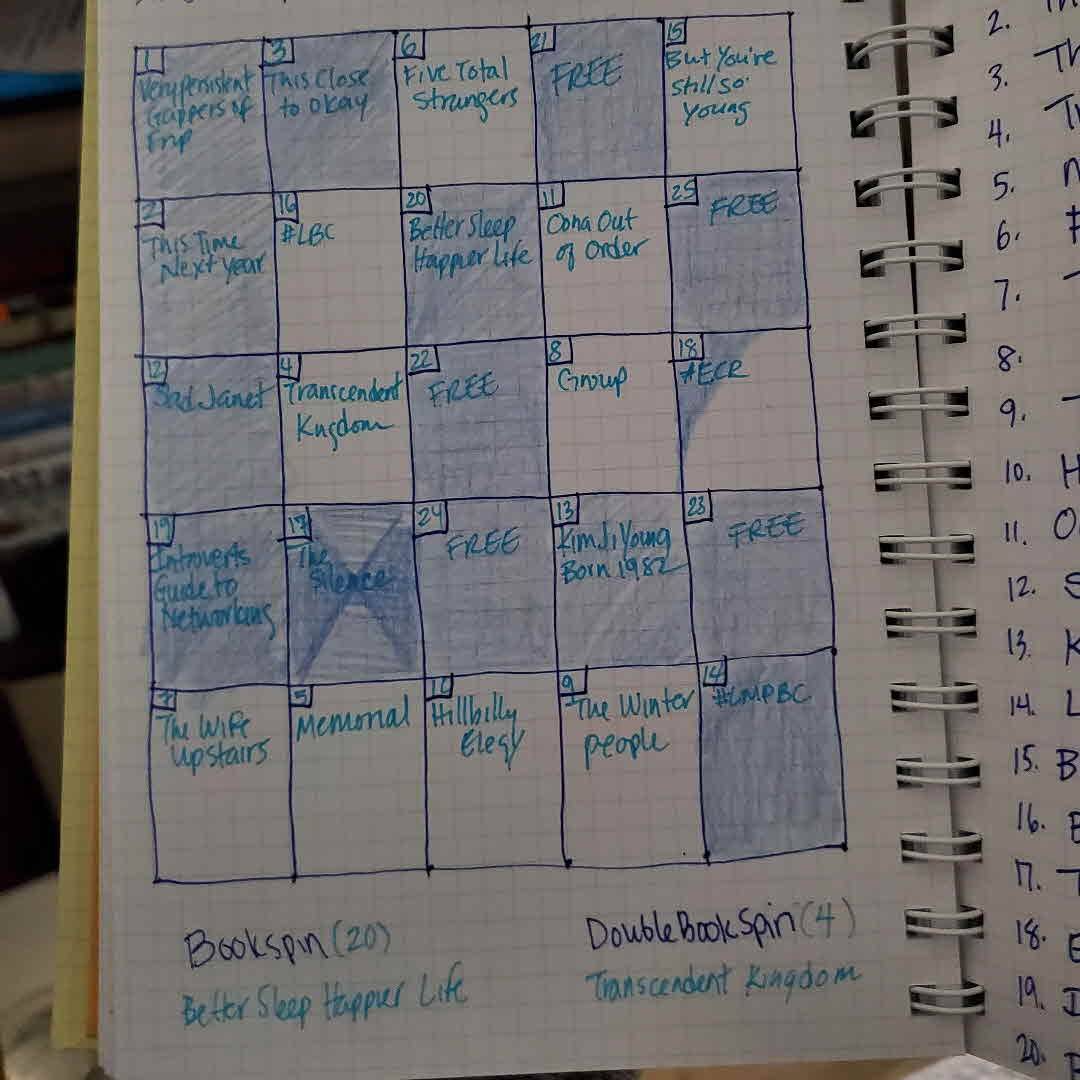 1
Very persistent
Gappers of
Frip
3
This Close
to okay
6
Five Total
Strangers
21
FREE
15
But You're
still so
young
2
This Time
Next year
16
#LBC
20
Better Sleep
Happier Life
11
Oona Out
of Order
25
FREE
12
Sad Janet
4
Transcendent
Kngdom
22
FREE
8
Group
18
#ECR
19
Introverts
Guide to
Networking
17
The
Silence
24
FREE
13
Kim Ji Young
Born 1982
23
FREE
7
The Wife
Upstairs
5
Memorial
Hillbilly
Elegy
9
The Winter
people
14
#LMPBC
Bookspin (20)
Better Sleep Happier Life
DoubleBookSpin (4)
Transcendent Kingdom
2.
3. Th
4.
5.
6.
7.
8.
9.
10. H
11. O
12. S
13. K
14. L
15. B
16.
17. T
18. E
19. I
20.